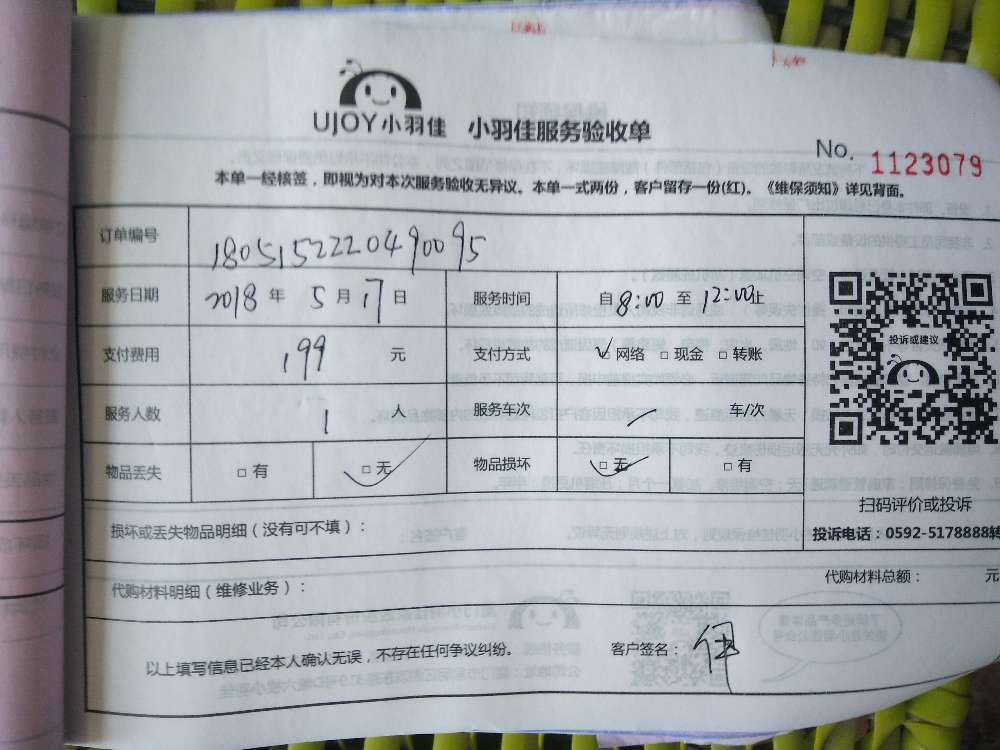 UJOY小羽佳 小羽佳服务验收单
No. 1123079
本单一经核签，即视为对本次服务验收无异议。本单一式两份，客户留存一份(红)。《维保须知》详见背面。
订单编号 1805152220490095
服务日期 2018 年 5 月 17 日 服务时间 自 8:00 至 12:00止
投诉或建议
支付费用 199 元 支付方式 ✓网络 □ 现金 □ 转账
服务人数 1 人 服务车次 车/次
物品丢失 □ 有 □ 无 物品损坏 □ 无 □ 有
扫码评价或投诉
损坏或丢失物品明细（没有可不填）：
投诉电话：0592-5178888转
代购材料明细（维修业务）： 代购材料总额： 元
以上填写信息已经本人确认无误，不存在任何争议纠纷。 客户签名：